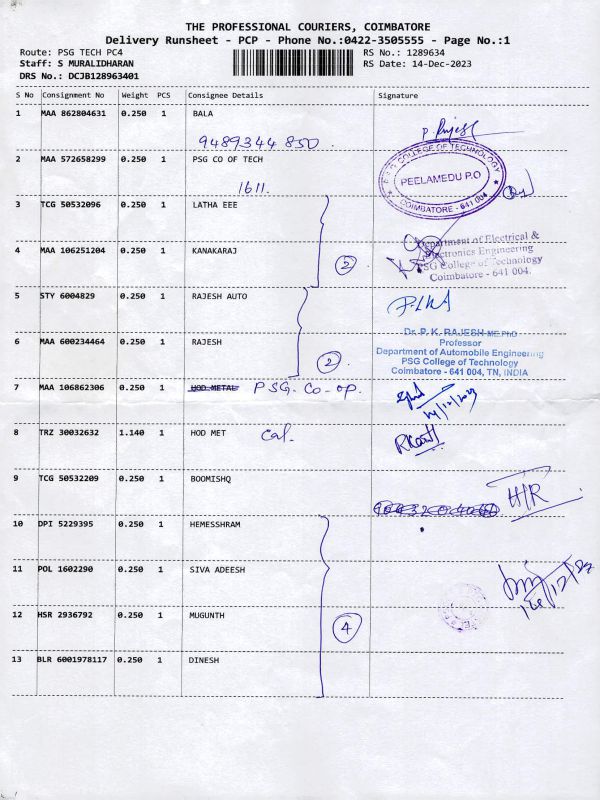 THE PROFESSIONAL COURIERS, COIMBATORE
Delivery Runsheet - PCP - Phone No.:0422-3505555 - Page No.:1
Route: PSG TECH PC4
RS No.: 1289634
Staff: S MURALIDHARAN
RS Date: 14-Dec-2023
DRS No.: DCJB128963401
S No Consignment No Weight PCS Consignee Details Signature
1 MAA 862804631 0.250 1 BALA
P. Rajesh
9489344850
2 MAA 572658299 0.250 1 PSG CO OF TECH
P.S.G. COLLEGE OF TECHNOLOGY
PEELAMEDU P.O
COIMBATORE - 641 004
1611.
3 TCG 50532096 0.250 1 LATHA EEE
4 MAA 106251204 0.250 1 KANAKARAJ
Department of Electrical &
Electronics Engineering
PSG College of Technology
Coimbatore - 641 004.
2
5 STY 6004829 0.250 1 RAJESH AUTO
6 MAA 600234464 0.250 1 RAJESH
Dr. P. K. RAJESH ME.PhD
Professor
Department of Automobile Engineering
PSG College of Technology
Coimbatore - 641 004, TN, INDIA
2
7 MAA 106862306 0.250 1 HOD METAL PSG. Co-op.
14/12/2023
8 TRZ 30032632 1.140 1 HOD MET Cal.
9 TCG 50532209 0.250 1 BOOMISHQ
H/R
10 DPI 5229395 0.250 1 HEMESSHRAM
11 POL 1602290 0.250 1 SIVA ADEESH
12 HSR 2936792 0.250 1 MUGUNTH
4
13 BLR 6001978117 0.250 1 DINESH